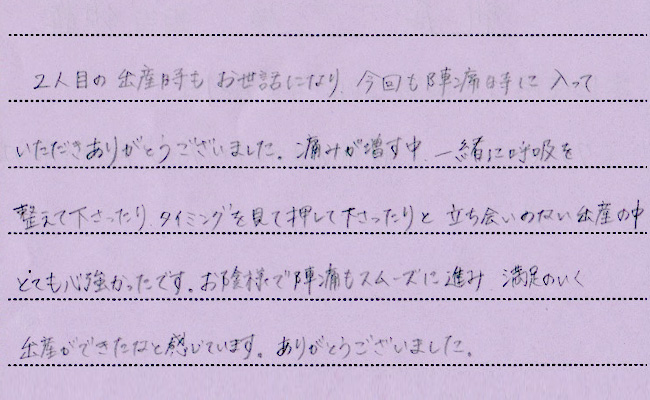 2人目の出産時もお世話になり、今回も陣痛時に入って
いただきありがとうございました。痛みが増す中、一緒に呼吸を
整えて下さったり、タイミングを見て押して下さったりと 立ち会いのない出産の中
とても心強かったです。お陰様で陣痛もスムーズに進み 満足のいく
出産ができたなと感じています。ありがとうございました。